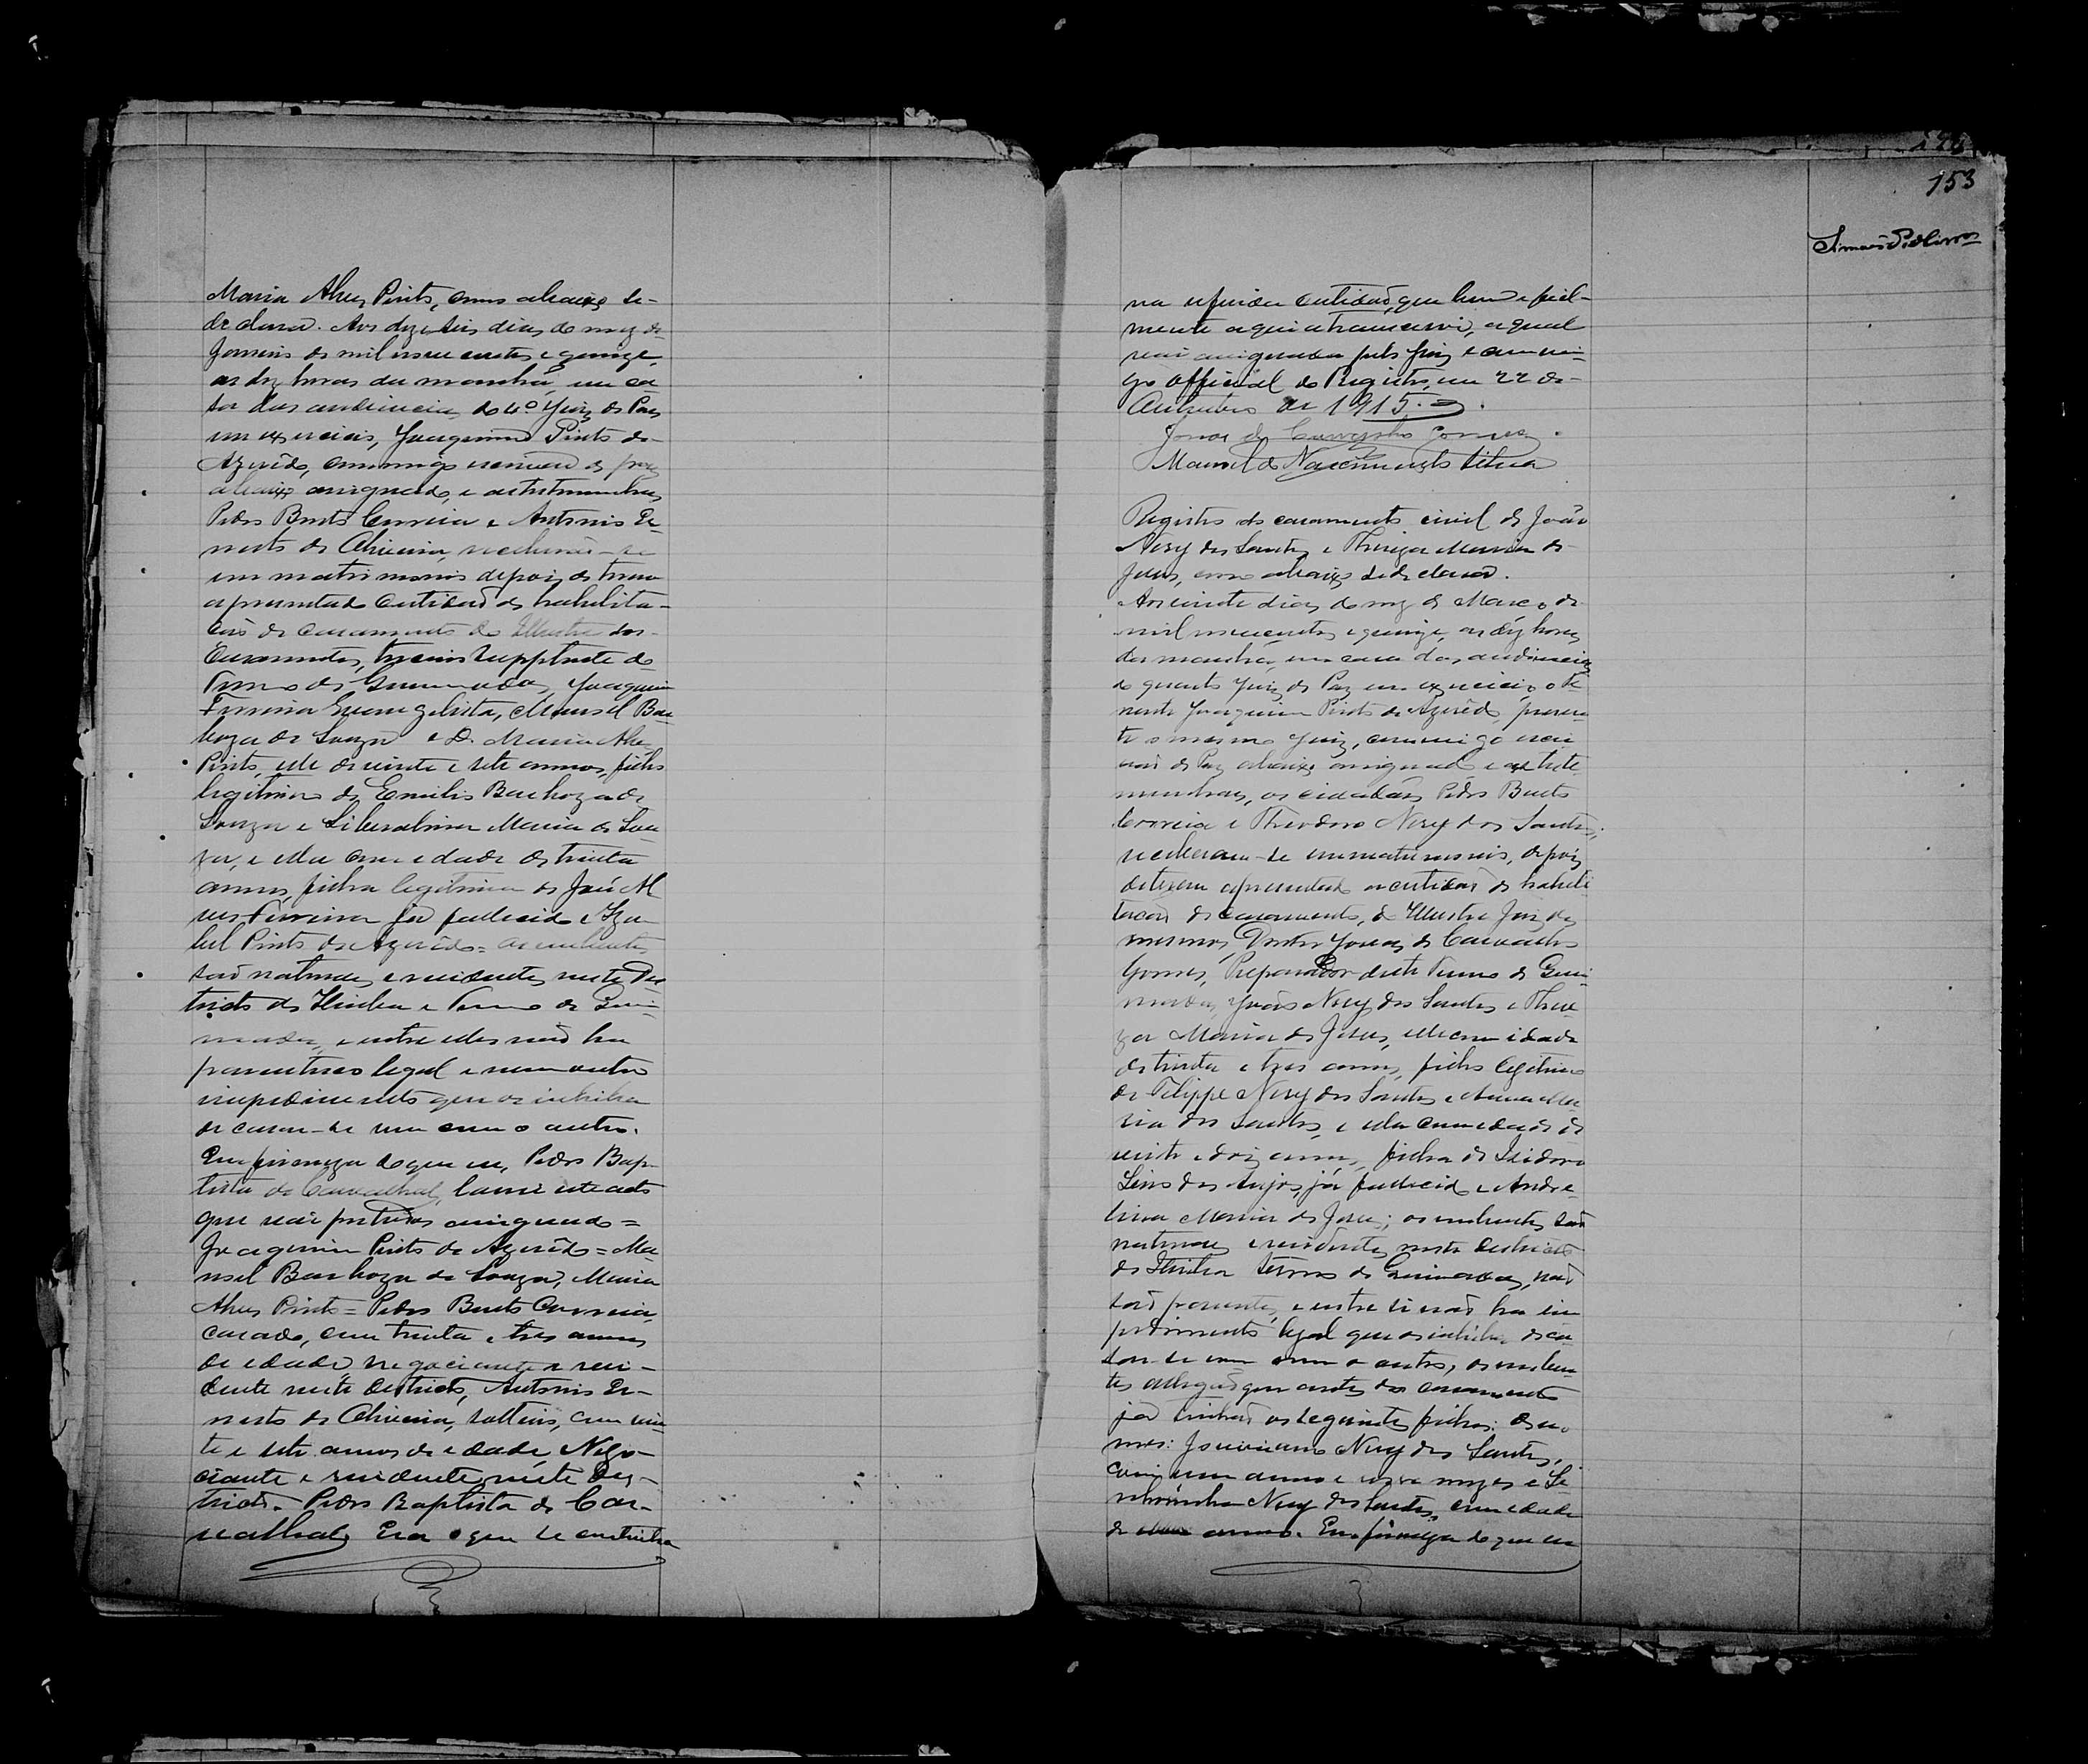 Maria Alves Pinto, como abaixo se
declara. Aos dezeseis dias do mez de
Janeiro de mil nove centos e quinze,
as dez horas da manhã, em ca-
sa das audiencias do 4º Juiz de Paz
em exercicio, Joaquim Pinto de
Azerêdo, commigo escrivão de paz
abaixo assignado, e as testemunhas
Pedro Bento Correia e Antonio Er-
nesto de Oliveira, receberão-se
em matrimonio depois de terem
apresentado certidão de habilita-
ção de casamento do Illustre dos
Casamentos, terceiro supplente do
Termo de Joaquim
Ferreira Evangelista, Manoel Bar-
boza de Souza e D. Maria Alves
Pinto, elle de vinte e sete annos, filho
legitimo de Emilio Barboza de
Souza e Liberalina Maria de Sou-
za, e ella com edade de trinta
annos, filha legitima de José Al-
ves Ferreira já fallecido e Iza-
bel Pinto de Azerêdo = os nubentes
são naturaes e residentes neste Dis-
tricto de e Termo de
e entre elles não ha
parentesco legal e nem outro
impedimento que os inhiba
de casar-se um com o outro.
Em firmeza do que eu, Pedro Bap-
tista de Carvalhal, lavrei este acto
que vai por todos assignado =
Joaquim Pinto de Azerêdo = Ma-
noel Barboza de Souza, Maria
Alves Pinto = Pedro Bento Correia,
casado, com trinta e tres annos
de edade, negociante e resi-
dente neste Destricto, Antonio Er-
nesto de Oliveira, solteiro, com vin-
te e sete annos de edade, Nego-
ciante e residente neste Des-
tricto. Pedro Baptista de Car-
valhal. Era o que se continha
153
na referida certidão, que bem e fiel-
mente aqui a transcrevi, a qual
vai assignada pelo Juiz e commi-
go Official do Registro, em 22 de
Outubro de 1915.
Jonas de Carvalho Gomes.
Manoel do Nascimento
Registro do casamento civil de João
Nery dos Santos e Thereza Maria de
Jesus, como abaixo se declara.
Aos vinte dias do mez de Março de
mil novecentos e quinze, as dez horas
da manhã, em casa das audiencias
do quarto Juiz de Paz em exercicio o Te-
nente Joaquim Pinto de Azerêdo, presen-
te o mesmo Juiz, commigo escri-
vão de Paz abaixo assignado e as teste-
munhas, os cidadãos Pedro Bento
Correia e Theodoro Nery dos Santos,
receberam-se em matrimonio, depois
de terem apresentado a certidão de habili-
tação de casamento, do Illustre Juiz dos
mesmos, Doutor Jonas de Carvalho
Gomes, Preparador deste Termo de
João Nery dos Santos e There-
za Maria de Jesus, elle com idade
de trinta e tres annos, filho legitimo
de Filippe Nery dos Santos e Anna Ma-
ria dos Santos, e ella com edade de
vinte e dois annos, filha de Izidoro
Lino dos Anjos, já fallecido e Andre-
lina Maria de Jesus; os nubentes são
naturaes e residentes neste Destricto
de termo de não
são parentes, e entre si não ha im-
pedimento legal que os inhiba de ca-
sar-se um com o outro, os nuben-
tes allegão que antes do casamento
já tinhão os seguintes filhos: de no-
mes: Nery dos Santos,
com um anno e nove mezes e
Nery dos Santos, com edade
de anno. Em firmeza do que eu